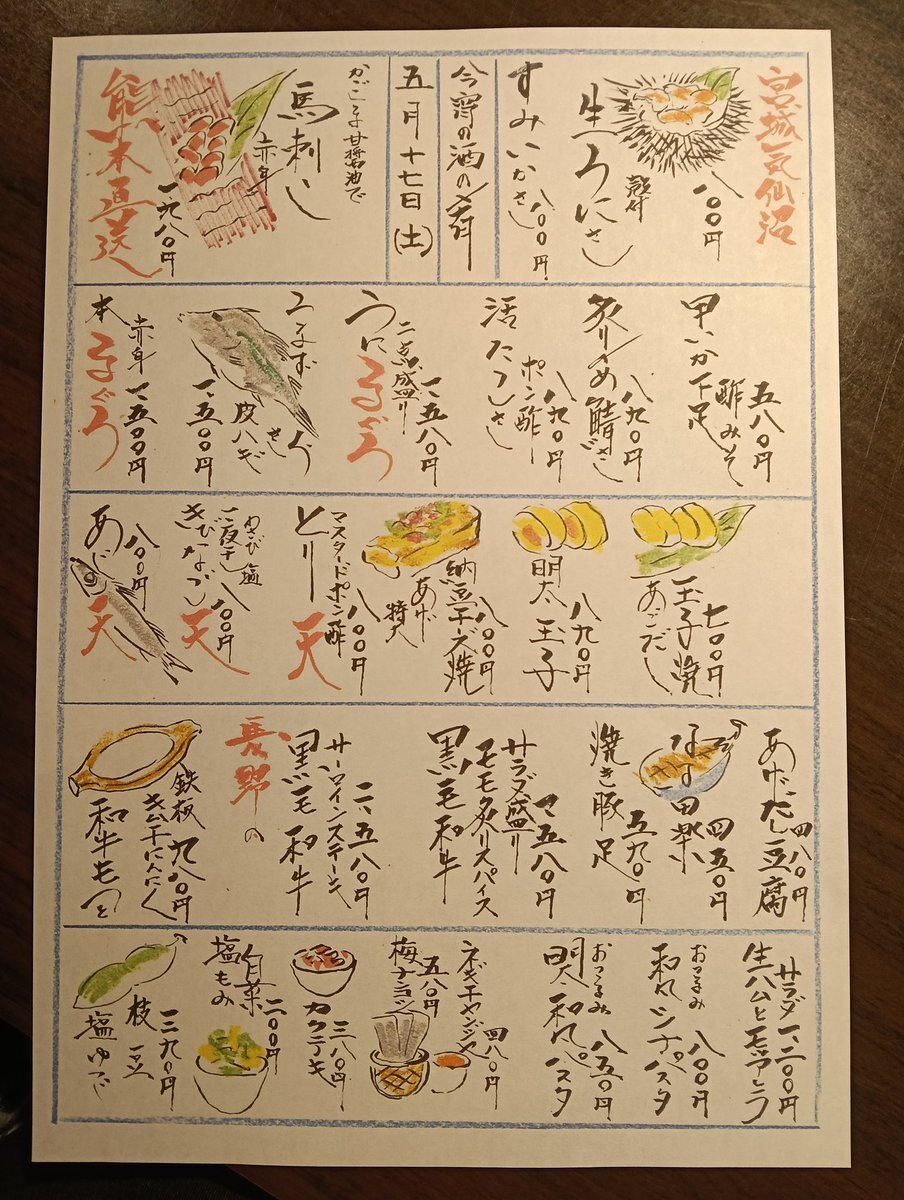 宮城気仙沼
生うにさし
八〇〇円
すみいかさし
八〇〇円
今宵の酒の肴
五月十七日(土)
かごしま甘醤油で
馬刺し
赤身
一九八〇円
熊本直送
甲いか下足
酢みそ
五八〇円
炙り〆鯖さし
八九〇円
活たこさし
ポン酢
八九〇円
うにまぐろ
二点盛り
一、五八〇円
皮ハギ
さし
一、五〇〇円
本まぐろ
赤身
一、五〇〇円
玉子焼
あごだし
七〇〇円
明太玉子
八九〇円
納豆チーズ焼
あげ
特大
八〇〇円
とり天
マスタードポン酢
八〇〇円
きびなご天
一夜干し
わさび塩
八〇〇円
あじ天
八〇〇円
あげだし豆腐
四八〇円
なす田楽
四五〇円
焼き豚足
五九〇円
黒毛和牛
モモ炙りスパイス
サラダ盛り
一、五八〇円
黒毛和牛
サーロインステーキ
二、五八〇円
長野の
和牛もつを
キムチにんにく
鉄板
九八〇円
生ハムとモッツァレラ
サラダ
一、二〇〇円
和風シナチパスタ
おつまみ
八〇〇円
明太和風パスタ
おつまみ
八五〇円
ネギチャンジャ
四八〇円
梅ナムコツ
五八〇円
カクテキ
三八〇円
白菜
塩もみ
二〇〇円
枝豆
塩ゆで
三九〇円